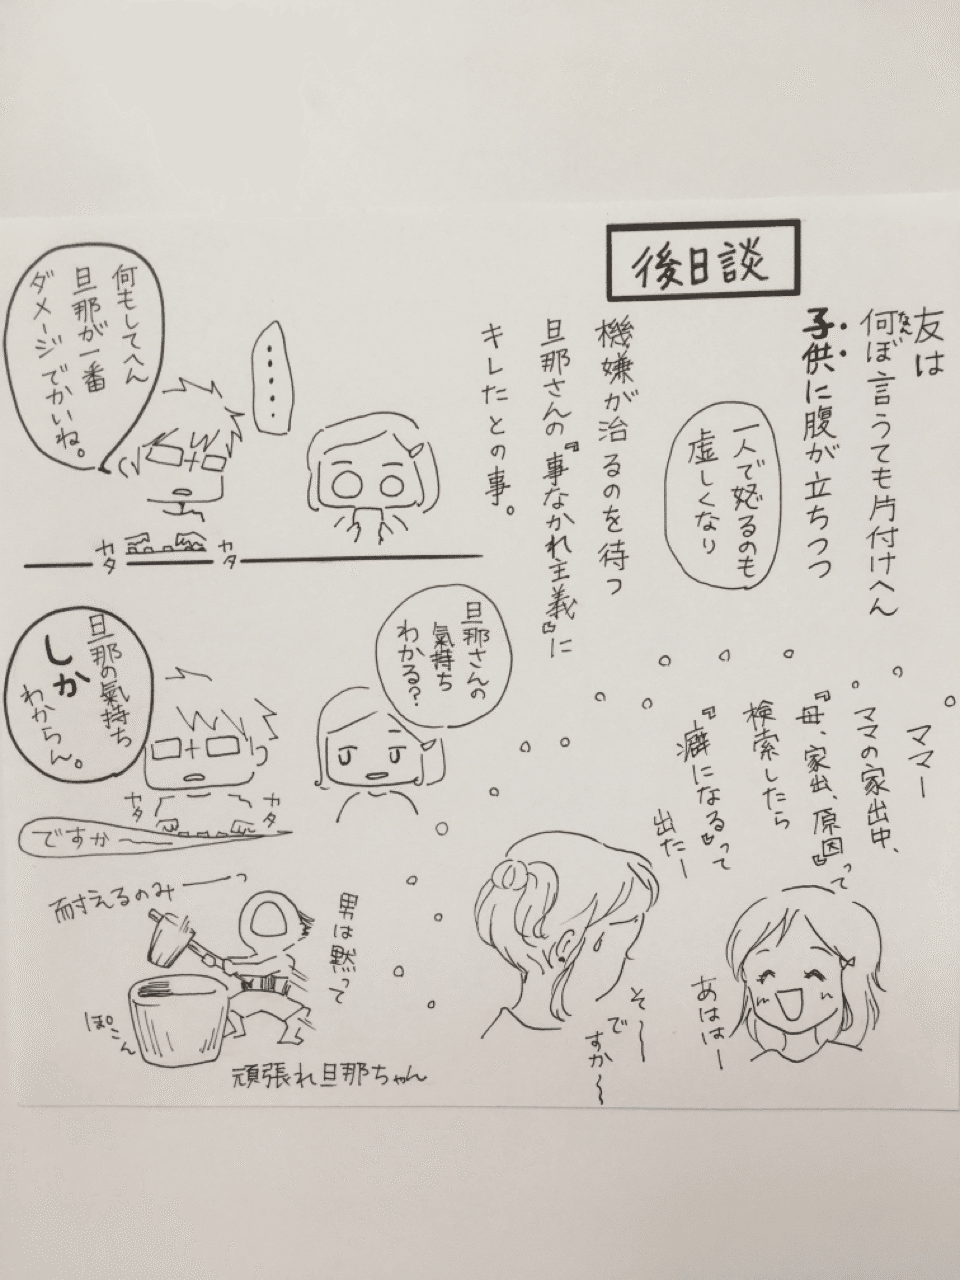 後日談
友は
何ぼ言うても片付けへん
なん
子供に腹が立ちつつ
一人で怒るのも
虚しくなり
機嫌が治るのを待つ
旦那さんの『事なかれ主義』に
キレたとの事。
・・・・・
何もしてへん
旦那が一番
ダメージでかいね。
カタ
カタ
旦那さんの
氣持ち
わかる?
旦那の氣持ち
しか
わからん。
カタ
カタ
ですかー
ママー
ママの家出中、
『母、家出、原因』って
検索したら
『癖になる』って
出たー
あははー
そー
で
すか〜
男は黙って
耐えるのみーっ
ぽこん
頑張れ旦那ちゃん